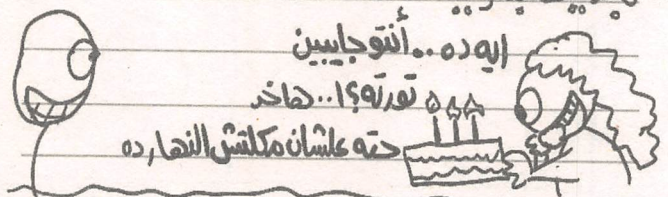 ايه ده.. أنتو جايبين
تورته؟!.. هاخد
حته علشان مكلتش النهارده